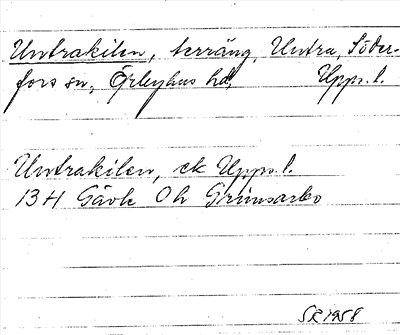 Untrakilen, terräng, Untra, Söder-
fors sn, Örbyhus hd, Upps. l.
Untrakilen, ek Upps. l.
13H Gävle Oh Grimsarbo
SR 1958